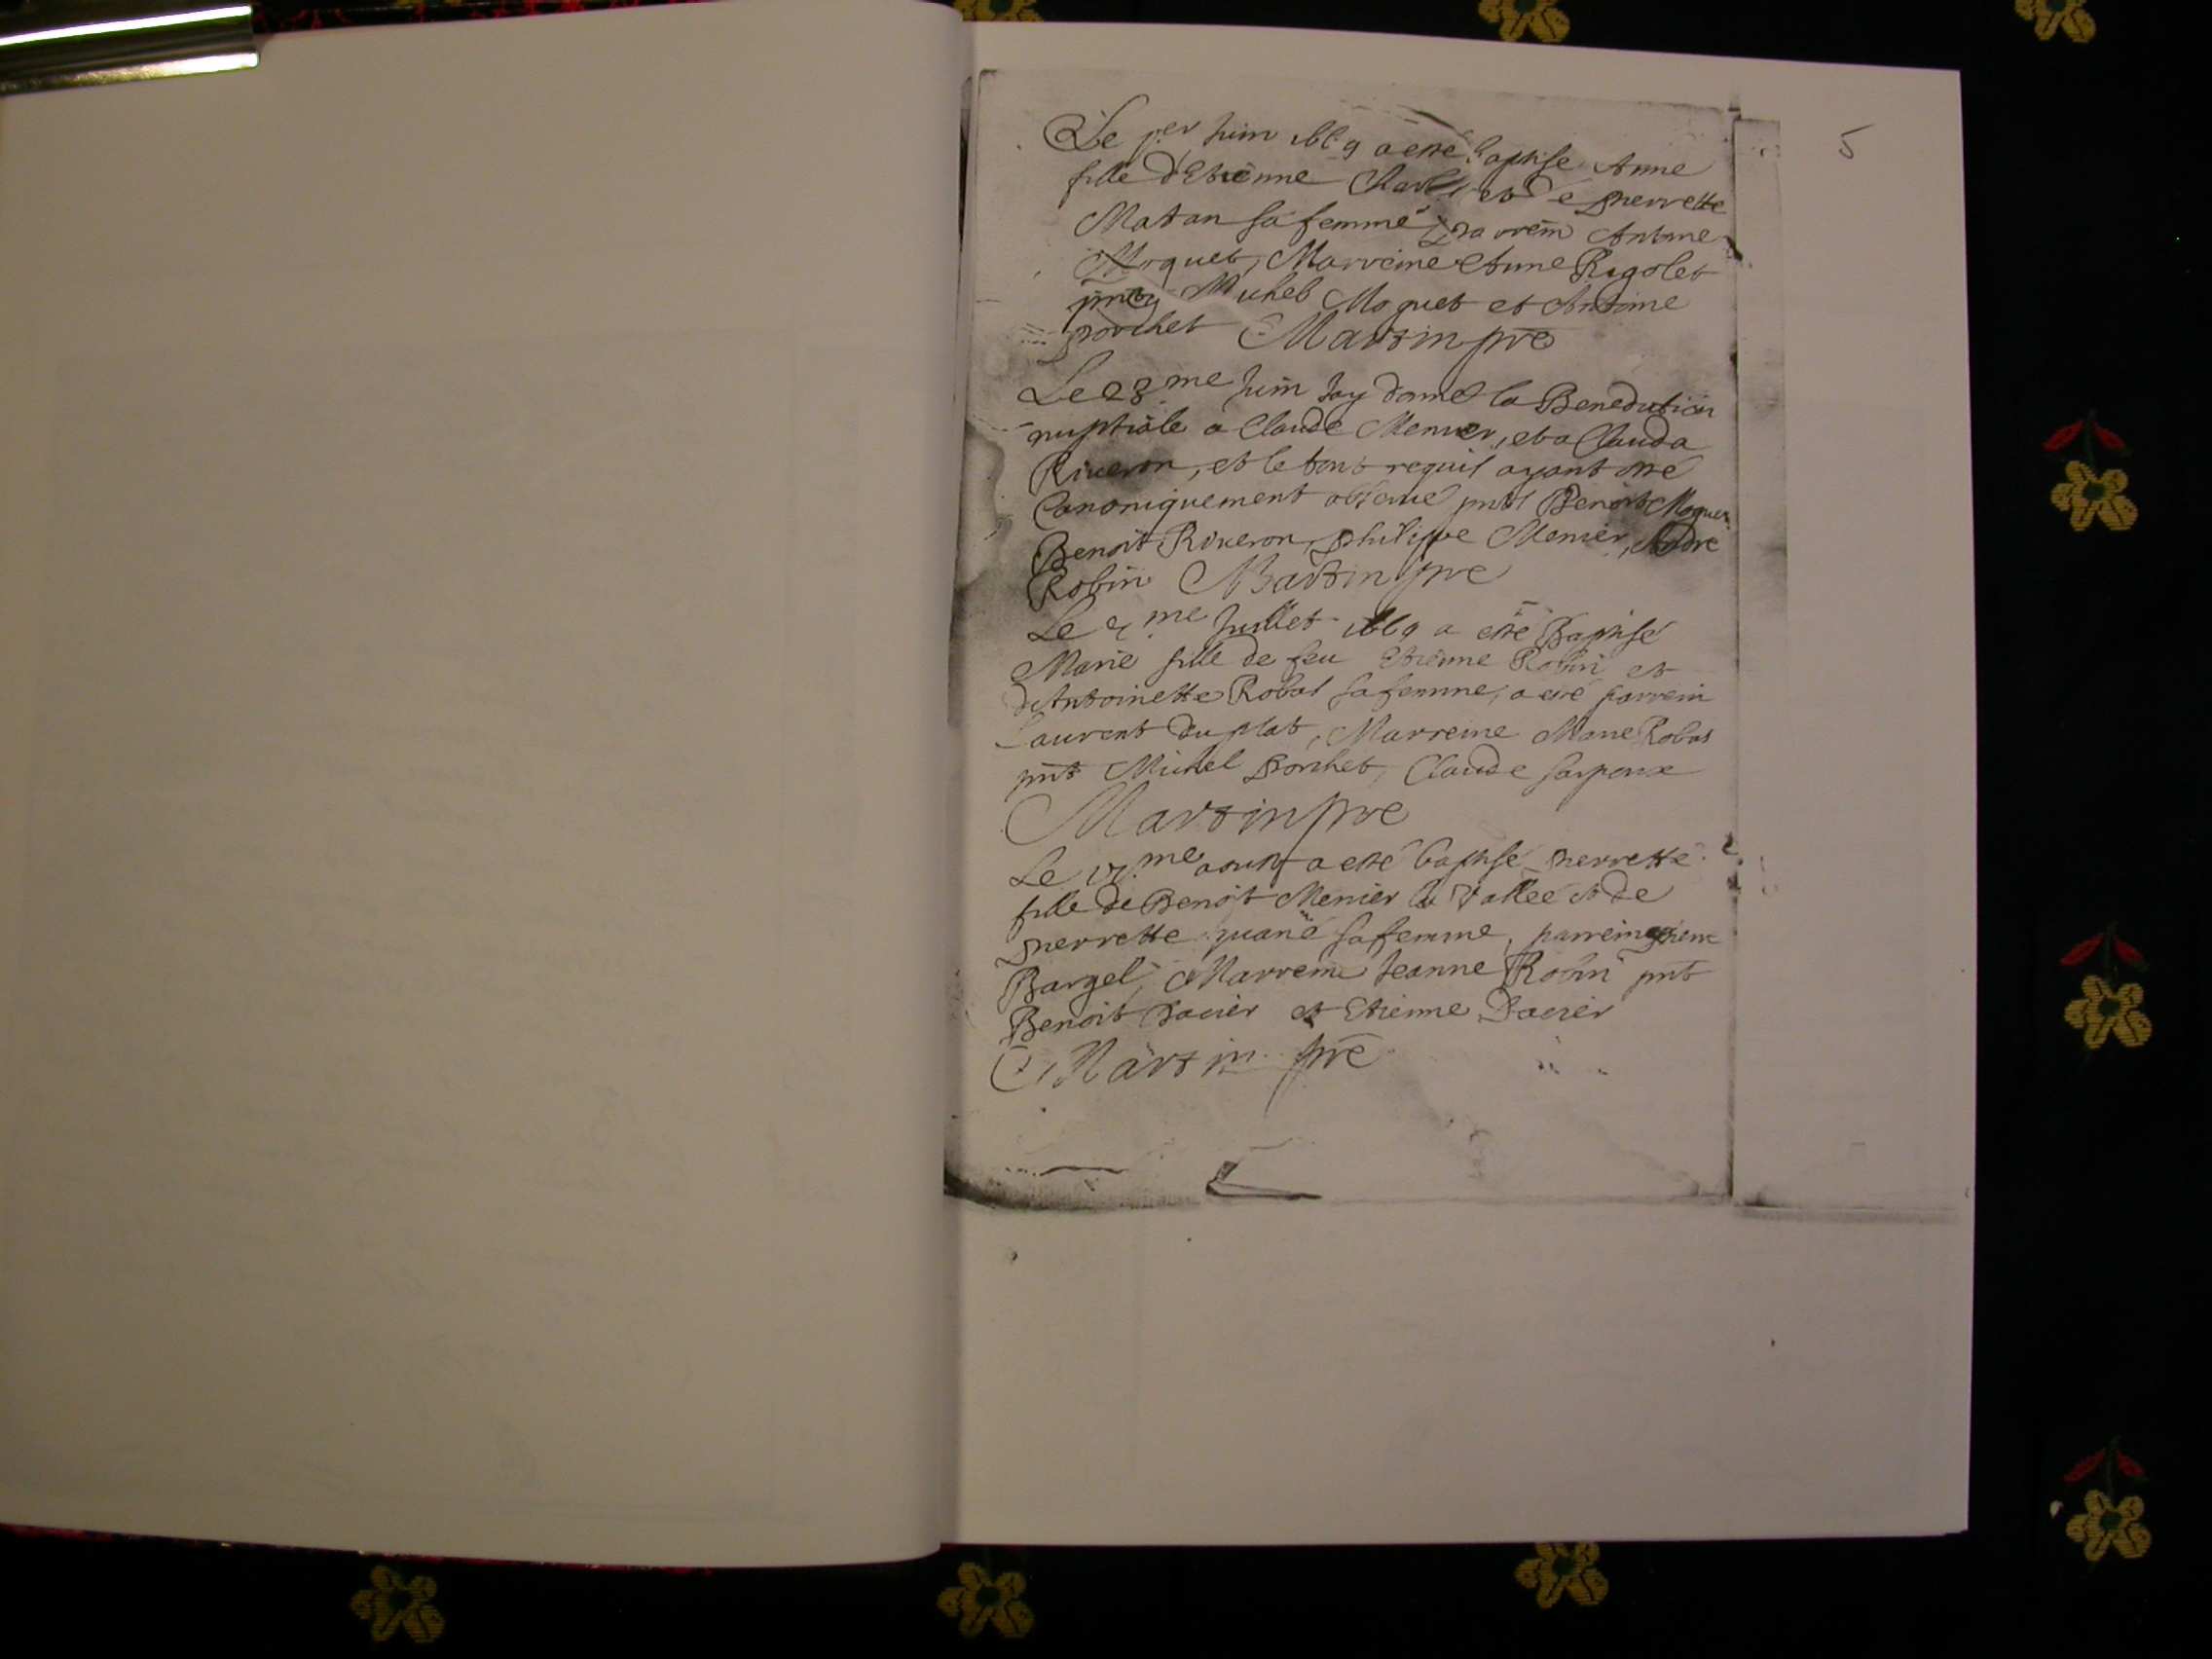 5
Le per Juin a esté baptisé Anne
fille d'Etienne et de pierrette
Matan sa femme, parrein Antoine
Moquet, Marreine Anne Rigolet
pnts Michel Moquet et Antoine
porchet Martin pre
Le 23me Juin Jay donné la Benediction
nuptiale a Claude Menier, et a Clauda
Riveron, et le tout requis ayant esté
Canoniquement observé pnts Benoit Moquet
Benoit Riveron, philippe Menier, André
Robin Martin pre
Le me Juillet a esté Baptisé
Marie fille de feu Etienne Robin et
d'Antoinette Robas sa femme, a esté parrein
Laurent du plat, Marreine Marie Robas
pnt Michel porchet, Claude
Martin pre
Le me aoust a esté baptisé pierrette
fille de Benoit Menier la Vallée et de
pierrette sa femme, parrein
Bargel, Marreine Jeanne Robin pnt
Benoit Dacier et Etienne Dacier
Martin pre